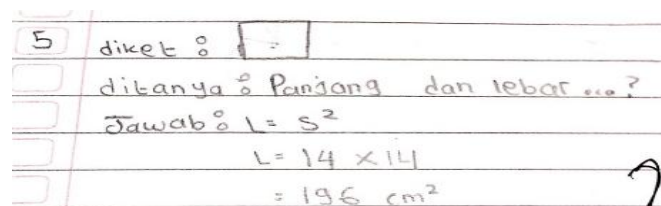 5 diket :
ditanya : Panjang dan lebar ...?
Jawab : L = S²
L = 14 × 14
= 196 cm²